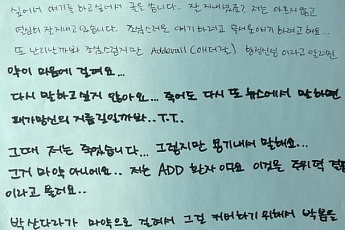 싶어서 얘기를 하고싶어서 글로 씁니다. 잘 지내셨죠? 저는 아프지않고
열심히 잘지내고 있습니다. 조심스러운 얘기하려고 무서운얘기 하려고 해요..
또 난리난까봐 조심스럽지만 Adderall (애더랄) 향정신성 이라고 알려진
약이 마음에 걸려요...
다시 말하고싶지 않아요... 죽어도 다시 또 뉴스에서 말하면
패가망신의 지름길일까봐.. T.T.
그때 저는 죽었습니다... 그렇지만 용기내서 말해요...
그거 마약 아니에요.. 저는 ADD 환자 이구요 이것은 주위력 결
이라고 불러요..
박산다라가 마약으로 걸려서 그걸 커버하기위해서 박봄을